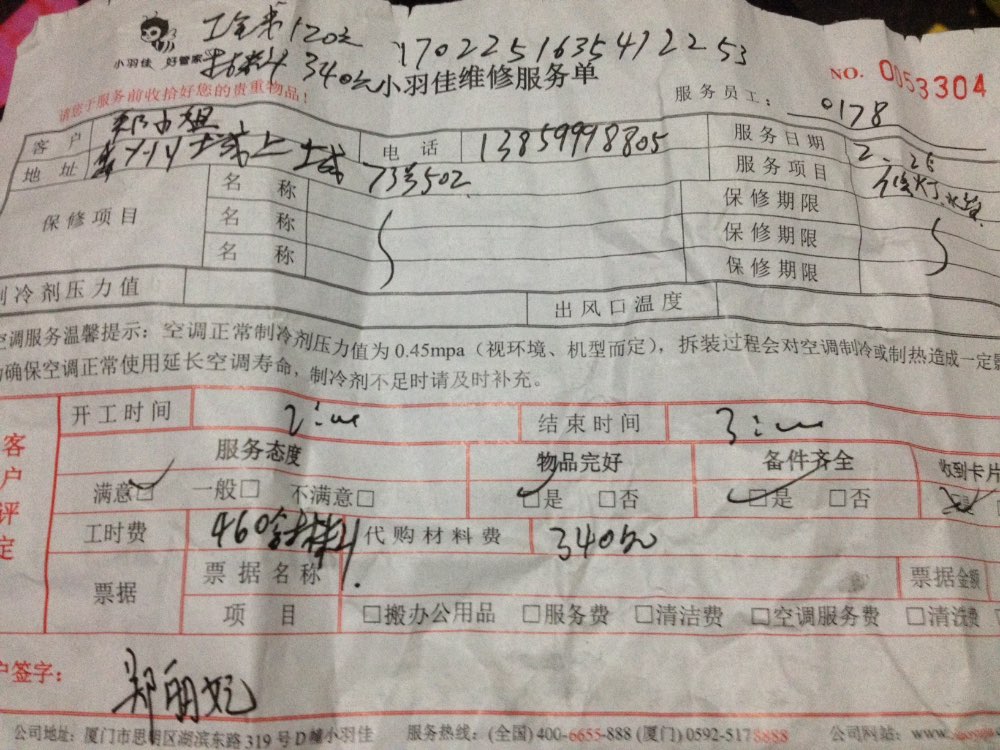 工金费120元
材料340元
17022516354122253
小羽佳 好管家
小羽佳维修服务单
NO. 0053304
请您于服务前收拾好您的贵重物品!
服务员工: 0178
客户 郑小姐 电话 13859998805 服务日期 2.25
地址 73号502 服务项目
保修项目 名称 保修期限
名称 保修期限
名称 保修期限
制冷剂压力值 出风口温度
空调服务温馨提示: 空调正常制冷剂压力值为0.45mpa (视环境、机型而定), 拆装过程会对空调制冷或制热造成一定影
确保空调正常使用延长空调寿命, 制冷剂不足时请及时补充。
客户评定
开工时间 结束时间
服务态度 物品完好 备件齐全 收到卡片
满意□ 一般□ 不满意□ □是 □否 □是 □否
工时费 460含材料 代购材料费 340元
票据 票据名称 票据金额
项目 □搬办公用品 □服务费 □清洁费 □空调服务费 □清洗费
户签字:
郑丽妃
公司地址: 厦门市思明区湖滨东路319号D幢小羽佳 服务热线: (全国) 400-6655-888 (厦门) 0592-5178888 公司网站: www.